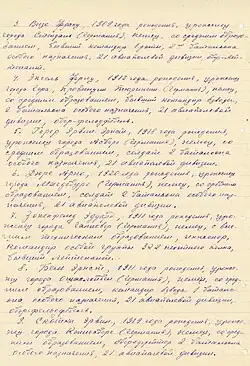 3. Визе Францу, 1919 года рождения, уроженцу
города (Германия), немцу, со средним образо-
ванием, бывший командир роты, 2го батальона
особого назначения, 21 авиаполевой дивизии, обер-лей-
тенант.
4. Энгель Францу, 1912 года рождения, уроженцу
города Гера, (Германия), немцу,
со средним образованием, бывший командир взвода,
2 батальона особого назначения, 21 авиаполевой
дивизии, обер-фельдфебель.
5. Эрвин 1916 года рождения,
уроженцу города (Германия), немцу, с
средним образованием, солдат 2 батальона
особого назначения, 21 авиаполевой дивизии.
6. Дюре Арно, 1920 года рождения, уроженцу
города Магдебург (Германия), немцу, со средним
образованием, солдат 2 батальона особого наз-
начения, 21 авиаполевой дивизии.
7. Эдуард, 1911 года рождения, уро-
женцу города Ганновер (Германия), немцу, с выс-
шим образованием, инженер,
Командир особой группы 322 пехотного полка,
бывший лейтенант.
8. 1911 года рождения, уроженцу
города (Германия), немцу, со сред-
ним образованием, командир взвода, 2 баталь-
она особого назначения, 21 авиаполевой дивизии,
обер-фельдфебель.
9. Эрвин, 1919 года рождения, уроже-
нцу города (Германия), немцу, со сред-
ним образованием, 2 батальона
особого назначения, 21 авиаполевой дивизии.